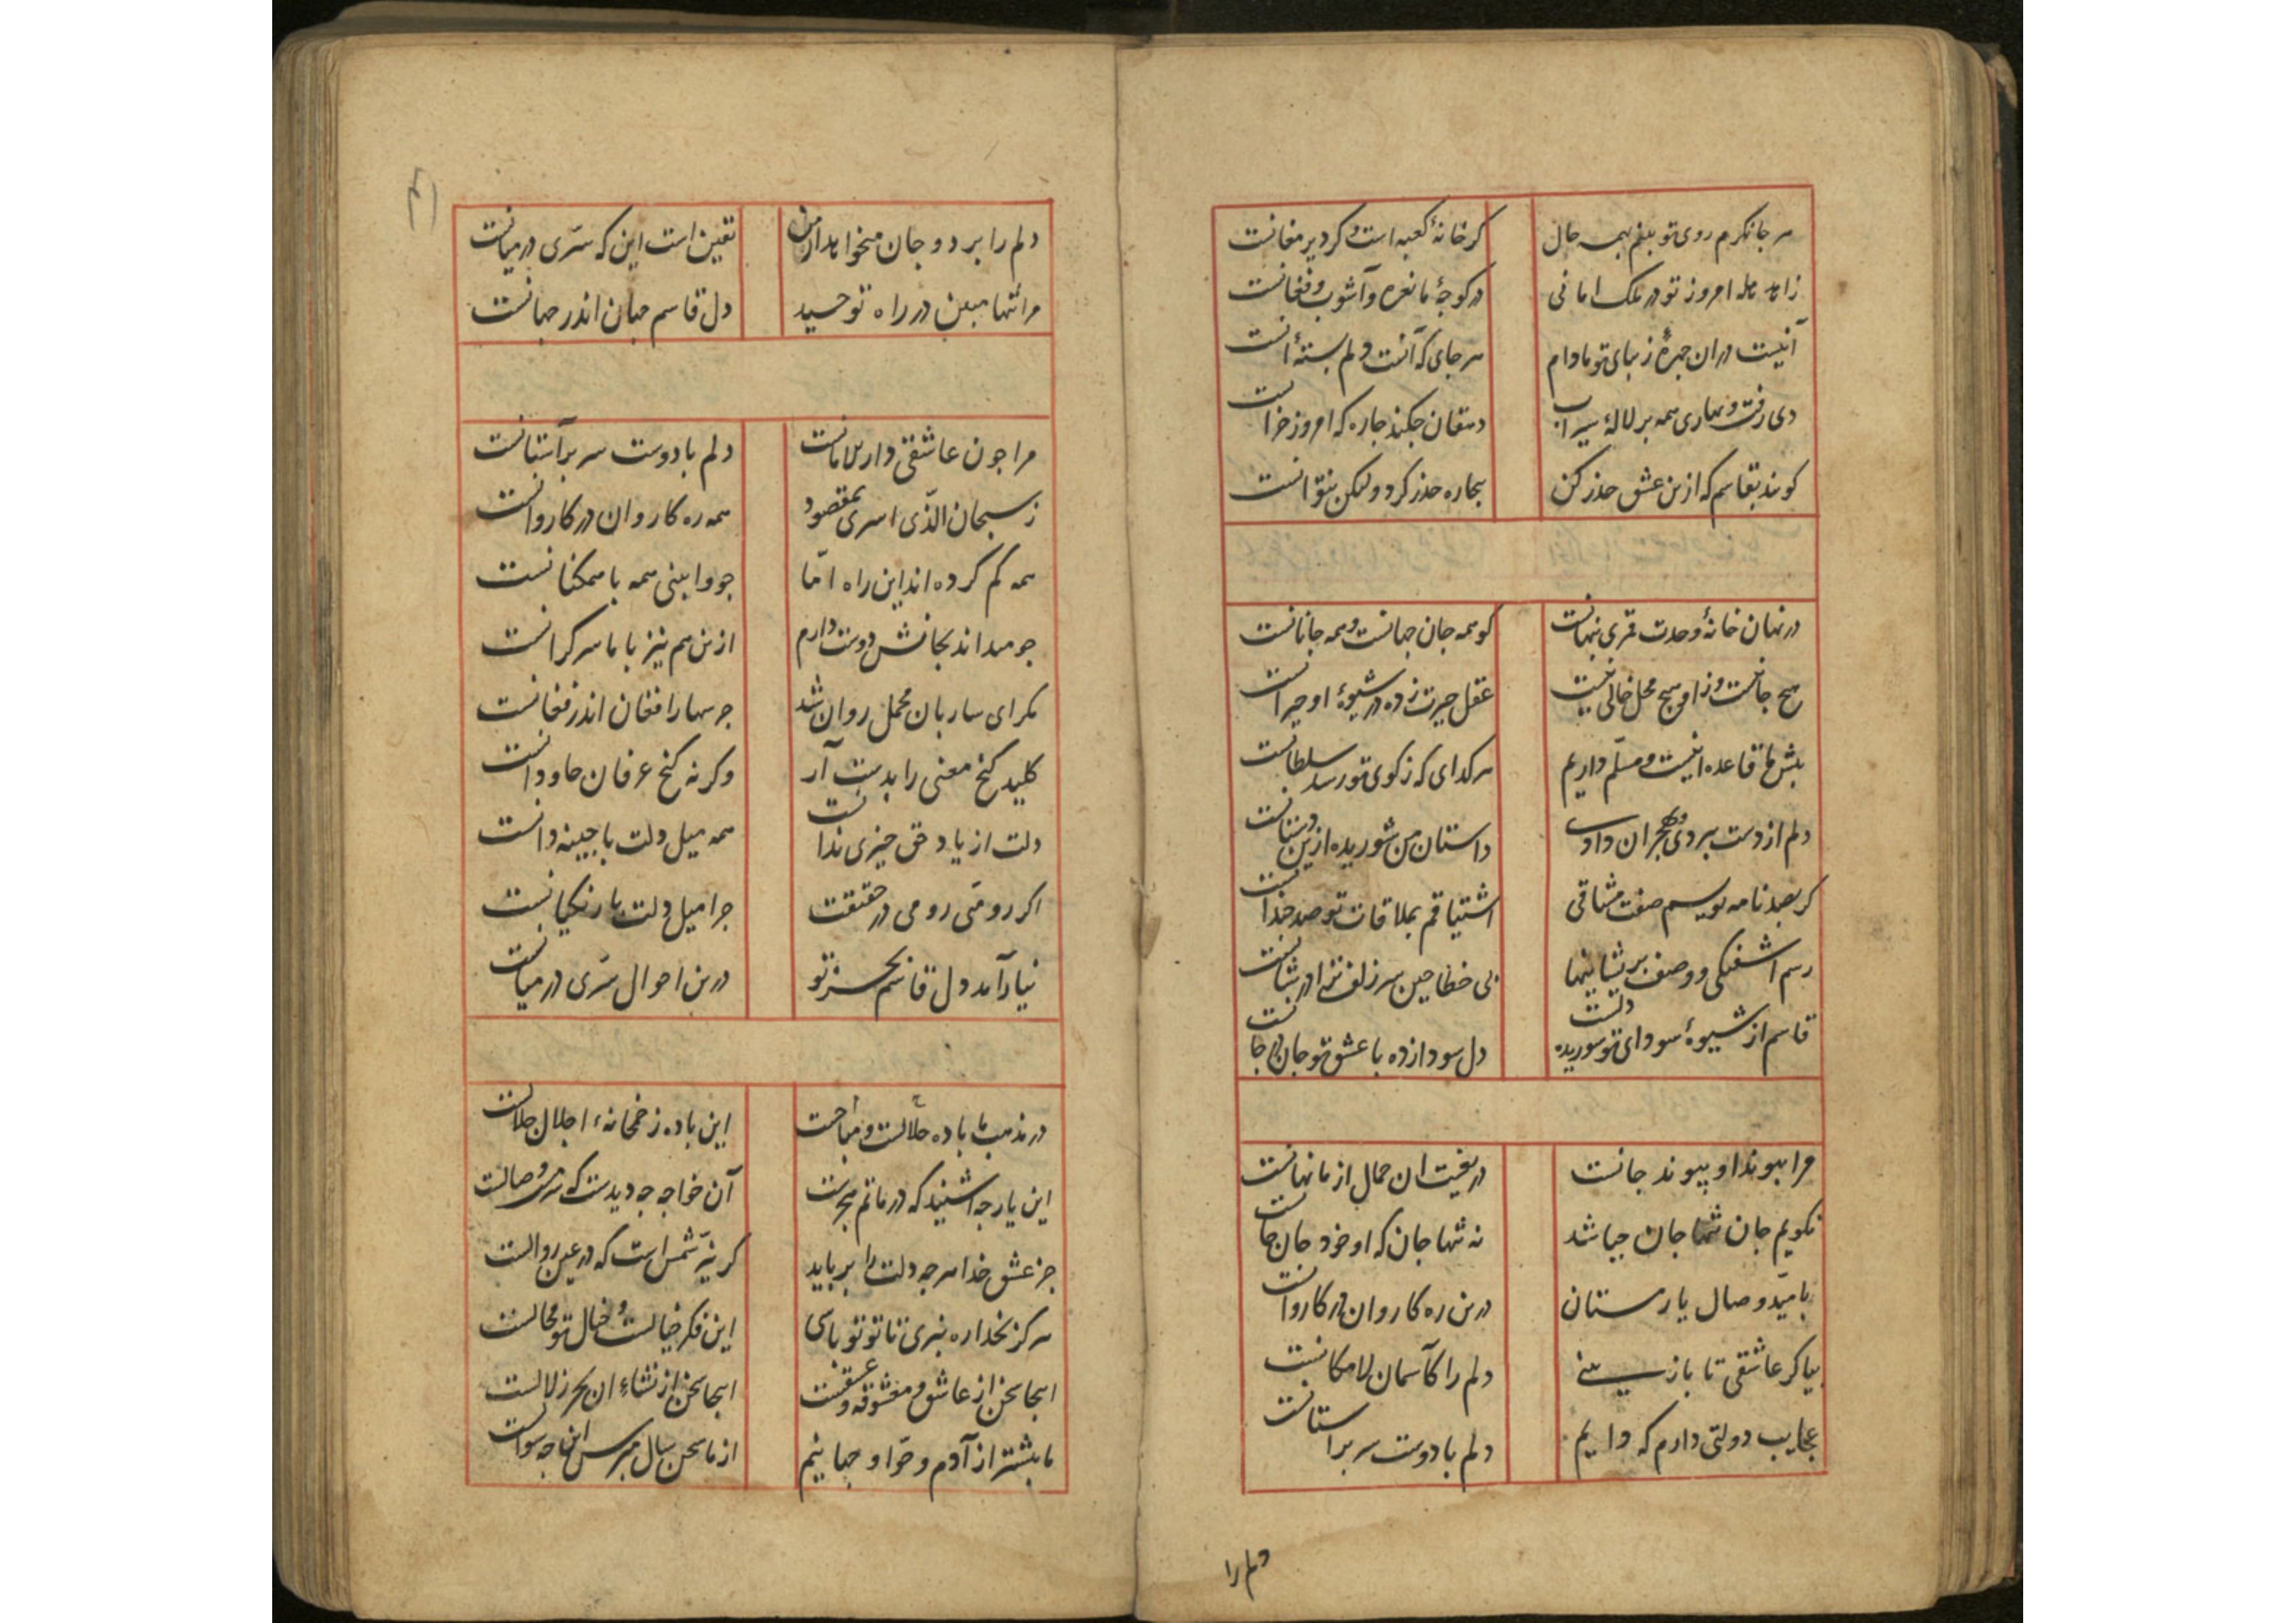 هر جا نکرم روی تو بینم بهمه حال کر خانهٔ کعبه است و کر دیر مغانست
زاهد هله امروز تو در ملک امانی در کوچهٔ ما نعره و آشوب و فغانست
آنیست دران چهرهٔ زیبای تو مادام هر جای که آنست دلم بستهٔ آنست
دی رفت و بهاری همه بر لالهٔ سیراب دهقان چکند چاره که امروز خزانست
کویند بقاسم که ازین عشق حذر کن بیچاره حذر کرد ولیکن نتوانست
در نهان خانهٔ وحدت قمری پنهانست کو همه جان جهانست و همه جانانست
هیچ جا نیست وزو هیچ محل خالی نیست عقل حیرت زده در شیوهٔ او حیرانست
پیش ما قاعده اینست و مسلّم داریم هر کدای که ز کوی تو رسد سلطانست
دلم از دست ببردی و بهجران دادی داستان من شوریده ازین دستانست
کر بصد نامه نویسم صفت مشتاقی اشتیاقم بملاقات تو صد چندانست
رسم آشفتکی و وصف پریشانیها بی خطا چین سر زلف ترا در شانست
قاسم از شیوهٔ سودای تو شوریده دلست دل سودازده با عشق تو جان در جانست
مرا پیوند او پیوند جانست دریغست ان جمال از ما نهانست
نکویم جان تنها جان چه باشد نه تنها جان که او خود جان جانست
بامیّد وصال یار مستان درین ره کاروان در کاروانست
بیا کر عاشقی تا باز بینی دلم را کآسمان لامکانست
عجایب دولتی دارم که دایم دلم با دوست سر بر استانست
دلم را
دلم را برد و جان میخواهد از من یقین است این که سرّی در میانست
مرا تنها مبین در راه توحید دل قاسم جهان اندر جهانست
مرا چون عاشقی دار الامانست دلم با دوست سر بر آستانست
ز سبحان الذّی اسری بمقصود همه ره کاروان در کاروانست
همه کم کرده اند این راه امّا چو وابینی همه با همکنانست
چو میداند بجانش دوست دارم ازین هم نیز با ما سر کرانست
مکر ای ساربان محمل روان شد جرسها را فغان اندر فغانست
کلید کنج معنی را بدست آر وکرنه کنج عرفان جاودانست
دلت از یاد حق چیزی ندانست همه میل دلت با چینه دانست
اکر رومّی رومی در حقیقت چرا میل دلت با زنکیانست
نیارآمد دل قاسم بجز تو درین احوال سرّی در میانست
در مذهب ما باده حلالست و مباحست این باده ز خمخانهٔ اجلال جلالست
این یار چه اشنید که در ماتم هجرست آن خواجه چه دیدست که در وصالست
جز عشق خدا هر چه دلت را برباید کر نیّر شمس است که در عین زوالست
هرکز بخدا ره نبری تا تو تو باشی این فکر خیالست و خیال تو محالست
اینجا سخن از عاشق و معشوقه و عشقست اینجا سخن از نشاء ان بحر زلالست
ما پیشتر از آدم و حوّا و جهانیم از ما سخن سال مپرس این چه سوالست